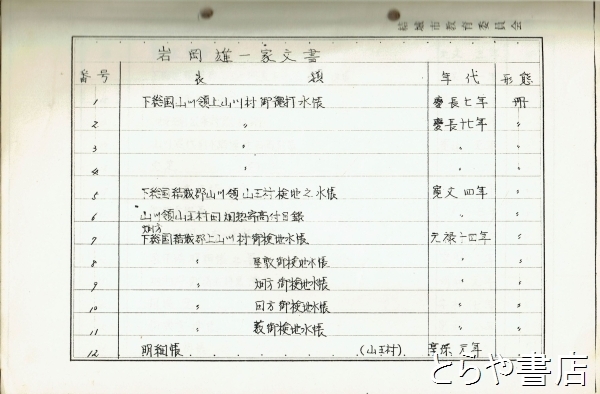 結城市教育委員会
岩岡雄一家文書
番号 表 題 年代 形態
1 下総国山川領上山川村御縄打水帳 慶長七年 冊
2 〃 慶長十七年 〃
3 〃 〃 〃
4 〃 〃 〃
5 下総国結城郡山川領山王村検地之水帳 寛文四年 〃
6 山川領山王村田畑惣寄高付目録 〃 〃
7 下総国結城郡上山川村畑方御検地水帳 元禄十四年 〃
8 〃 屋敷御検地水帳 〃 〃
9 〃 畑方御検地水帳 〃 〃
10 〃 田方御検地水帳 〃 〃
11 〃 藪御検地水帳 〃 〃
12 明細帳 (山王村) 享保元年 〃
とらや書店